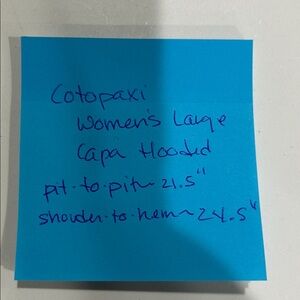 Cotopaxi
Women's Large
Capa Hooded
pit-to-pit~21.5"
shoulder-to-hem~24.5"